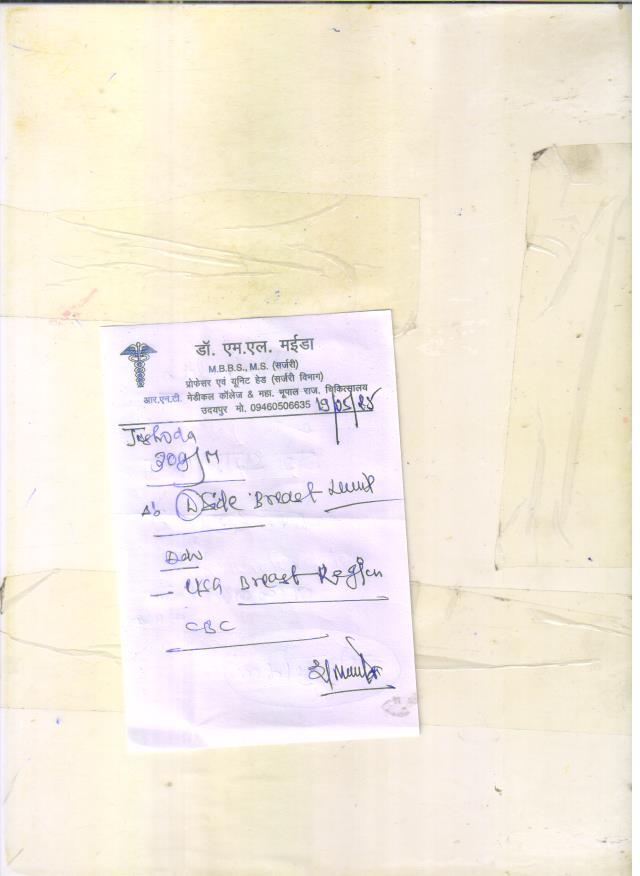 डॉ. एम.एल. मईडा
M.B.B.S., M.S. (सर्जरी)
प्रोफेसर एवं यूनिट हेड (सर्जरी विभाग)
आर.एन.टी. मेडीकल कॉलेज & महा. भूपाल राज. चिकित्सालय
उदयपुर मो. 09460506635 19/05/25
Jashoda
Side Breast Lump
Adv
USG Breast Region
CBC